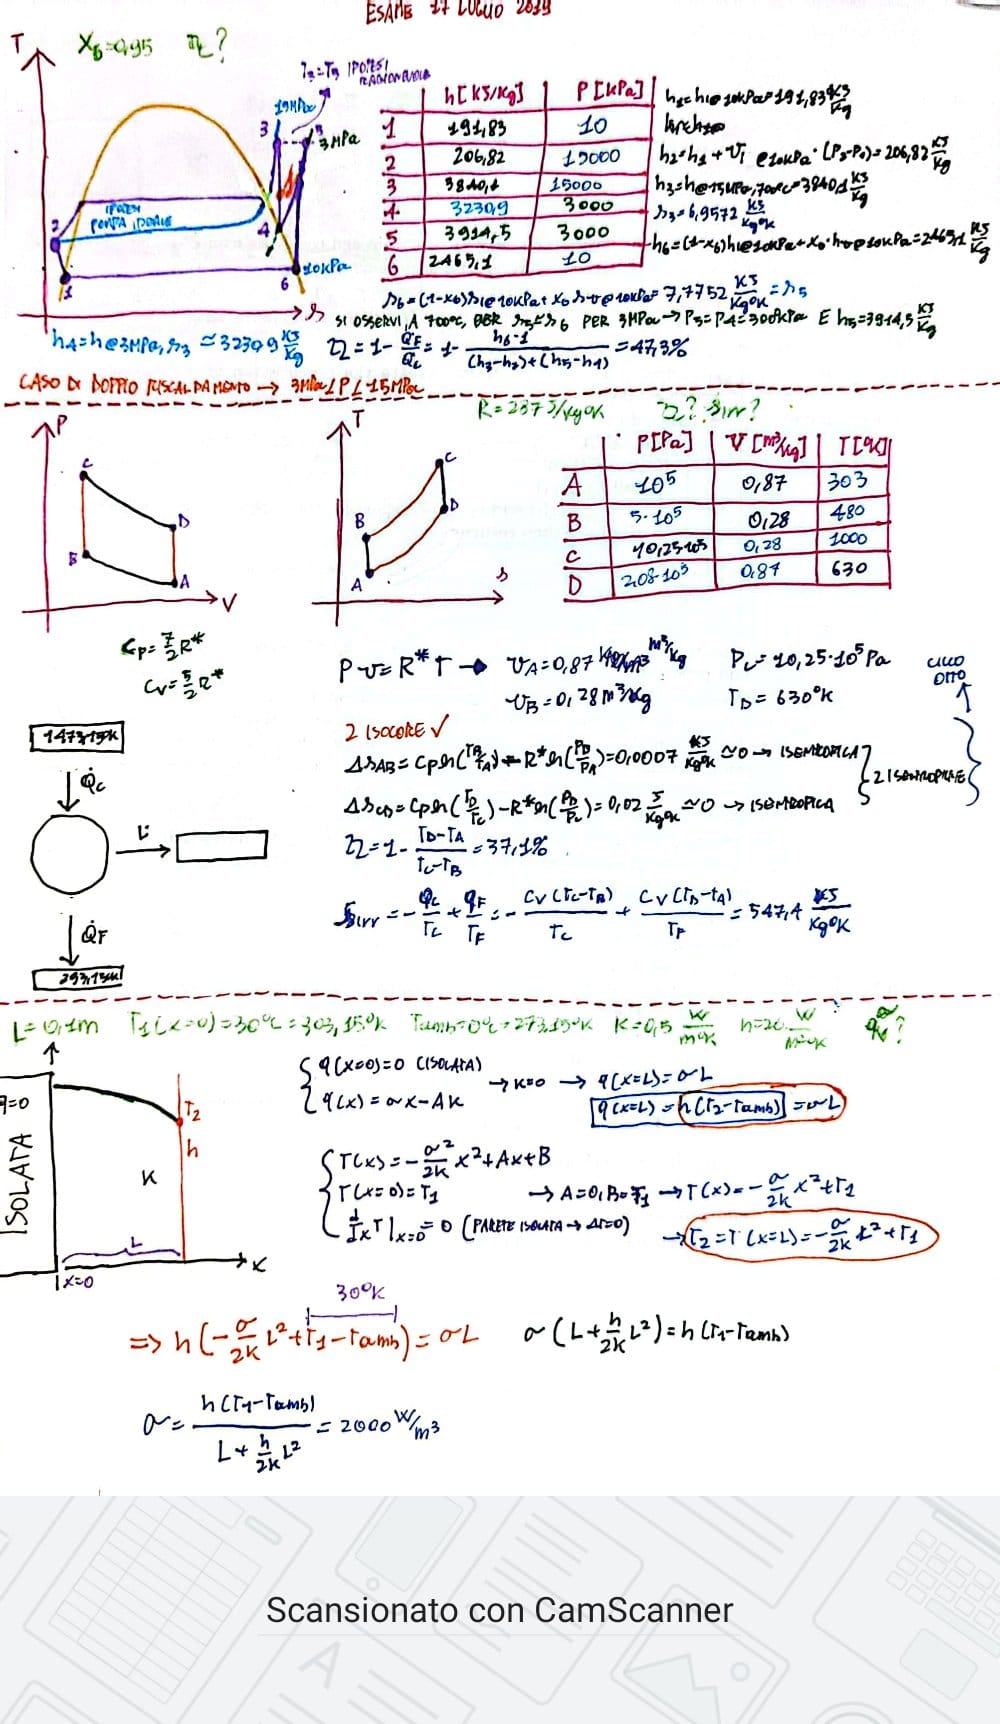 ESAME 17 LUGLIO 2019
T
X6=0,95 η?
T3=T5 IPOTESI RAGIONEVOLE
15MPa
3
5
3MPa
2
IPOTESI
POMPA IDEALE
4
10kPa
1
6
s
h[KJ/Kg] P[KPa]
1 191,83 10
2 206,82 15000
3 3840,1 15000
4 3230,9 3000
5 3914,5 3000
6 2465,1 10
h1=hl@10kPa=191,83 KJ/Kg
h2=h1+vl@10kPa·(P2-P1)=206,82 KJ/Kg
h3=h@15MPa,700°C=3840,1 KJ/Kg
s3=6,9572 KJ/Kg°K
h6=(1-x6)hl@10kPa+x6·hv@10kPa=2465,1 KJ/Kg
s6=(1-x6)sl@10kPa+x6 sv@10kPa=7,7752 KJ/Kg°K=s5
SI OSSERVI, A 700°C, PER s5=s6 PER 3MPa→P5=P4=3000kPa E h5=3914,5 KJ/Kg
h4=h@3MPa,s3 ≃3230,9 KJ/Kg η=1-QF/QC=1-(h6-1)/((h3-h2)+(h5-h4))=47,3%
CASO DI DOPPIO RISCALDAMENTO → 3MPa<P<15MPa
R=287 J/Kg°K η? Sirr?
P
C
B
D
A
V
T
C
B
D
A
s
P[Pa] V[m³/Kg] T[°K]
A 10⁵ 0,87 303
B 5·10⁵ 0,28 480
C 10,25·10⁵ 0,28 1000
D 2,08·10⁵ 0,87 630
Cp=7/2R*
Cv=5/2R*
Pv=R*T → vA=0,87 m³/Kg PC=10,25·10⁵Pa
vB=0,28m³/Kg TD=630°K
CICLO OTTO
1473,15K
Q̇c
L̇
Q̇F
293,15K
2 ISOCORE ✓
ΔsAB=Cpln(TB/TA)-R*ln(PB/PA)=0,0007 KJ/Kg°K ≃0→ISENTROPICA
ΔsCD=Cpln(TD/TC)-R*ln(PD/PC)=0,02 J/Kg°K ≃0→ISENTROPICA
2 ISENTROPICHE
η=1-(TD-TA)/(TC-TB)=37,1%
Sirr=-qc/Tc+qF/TF=-Cv(TC-TB)/Tc+Cv(TD-TA)/TF=547,4 KJ/Kg°K
L=0,1m T1(x=0)=30°C=303,15°K Tamb=0°C=273,15°K K=0,5 W/m°K h=20 W/m²°K σ?
q=0
ISOLATA
T2
h
K
L
x=0
x
q(x=0)=0 (ISOLATA)
q(x)=σx-AK →K=0 → q(x=L)=σL
q(x=L)=h(T2-Tamb)=σL
T(x)=-σ²/2K x²+Ax+B
T(x=0)=T1 →A=0,B=T1→T(x)=-σ/2K x²+T1
d/dx T|x=0=0 (PARETE ISOLATA→ΔT=0) →T2=T(x=L)=-σ/2K L²+T1
30°K
⇒ h(-σ/2K L²+T1-Tamb)=σL σ(L+h/2K L²)=h(T1-Tamb)
σ=h(T1-Tamb)/(L+h/2K L²)=2000 W/m³
Scansionato con CamScanner